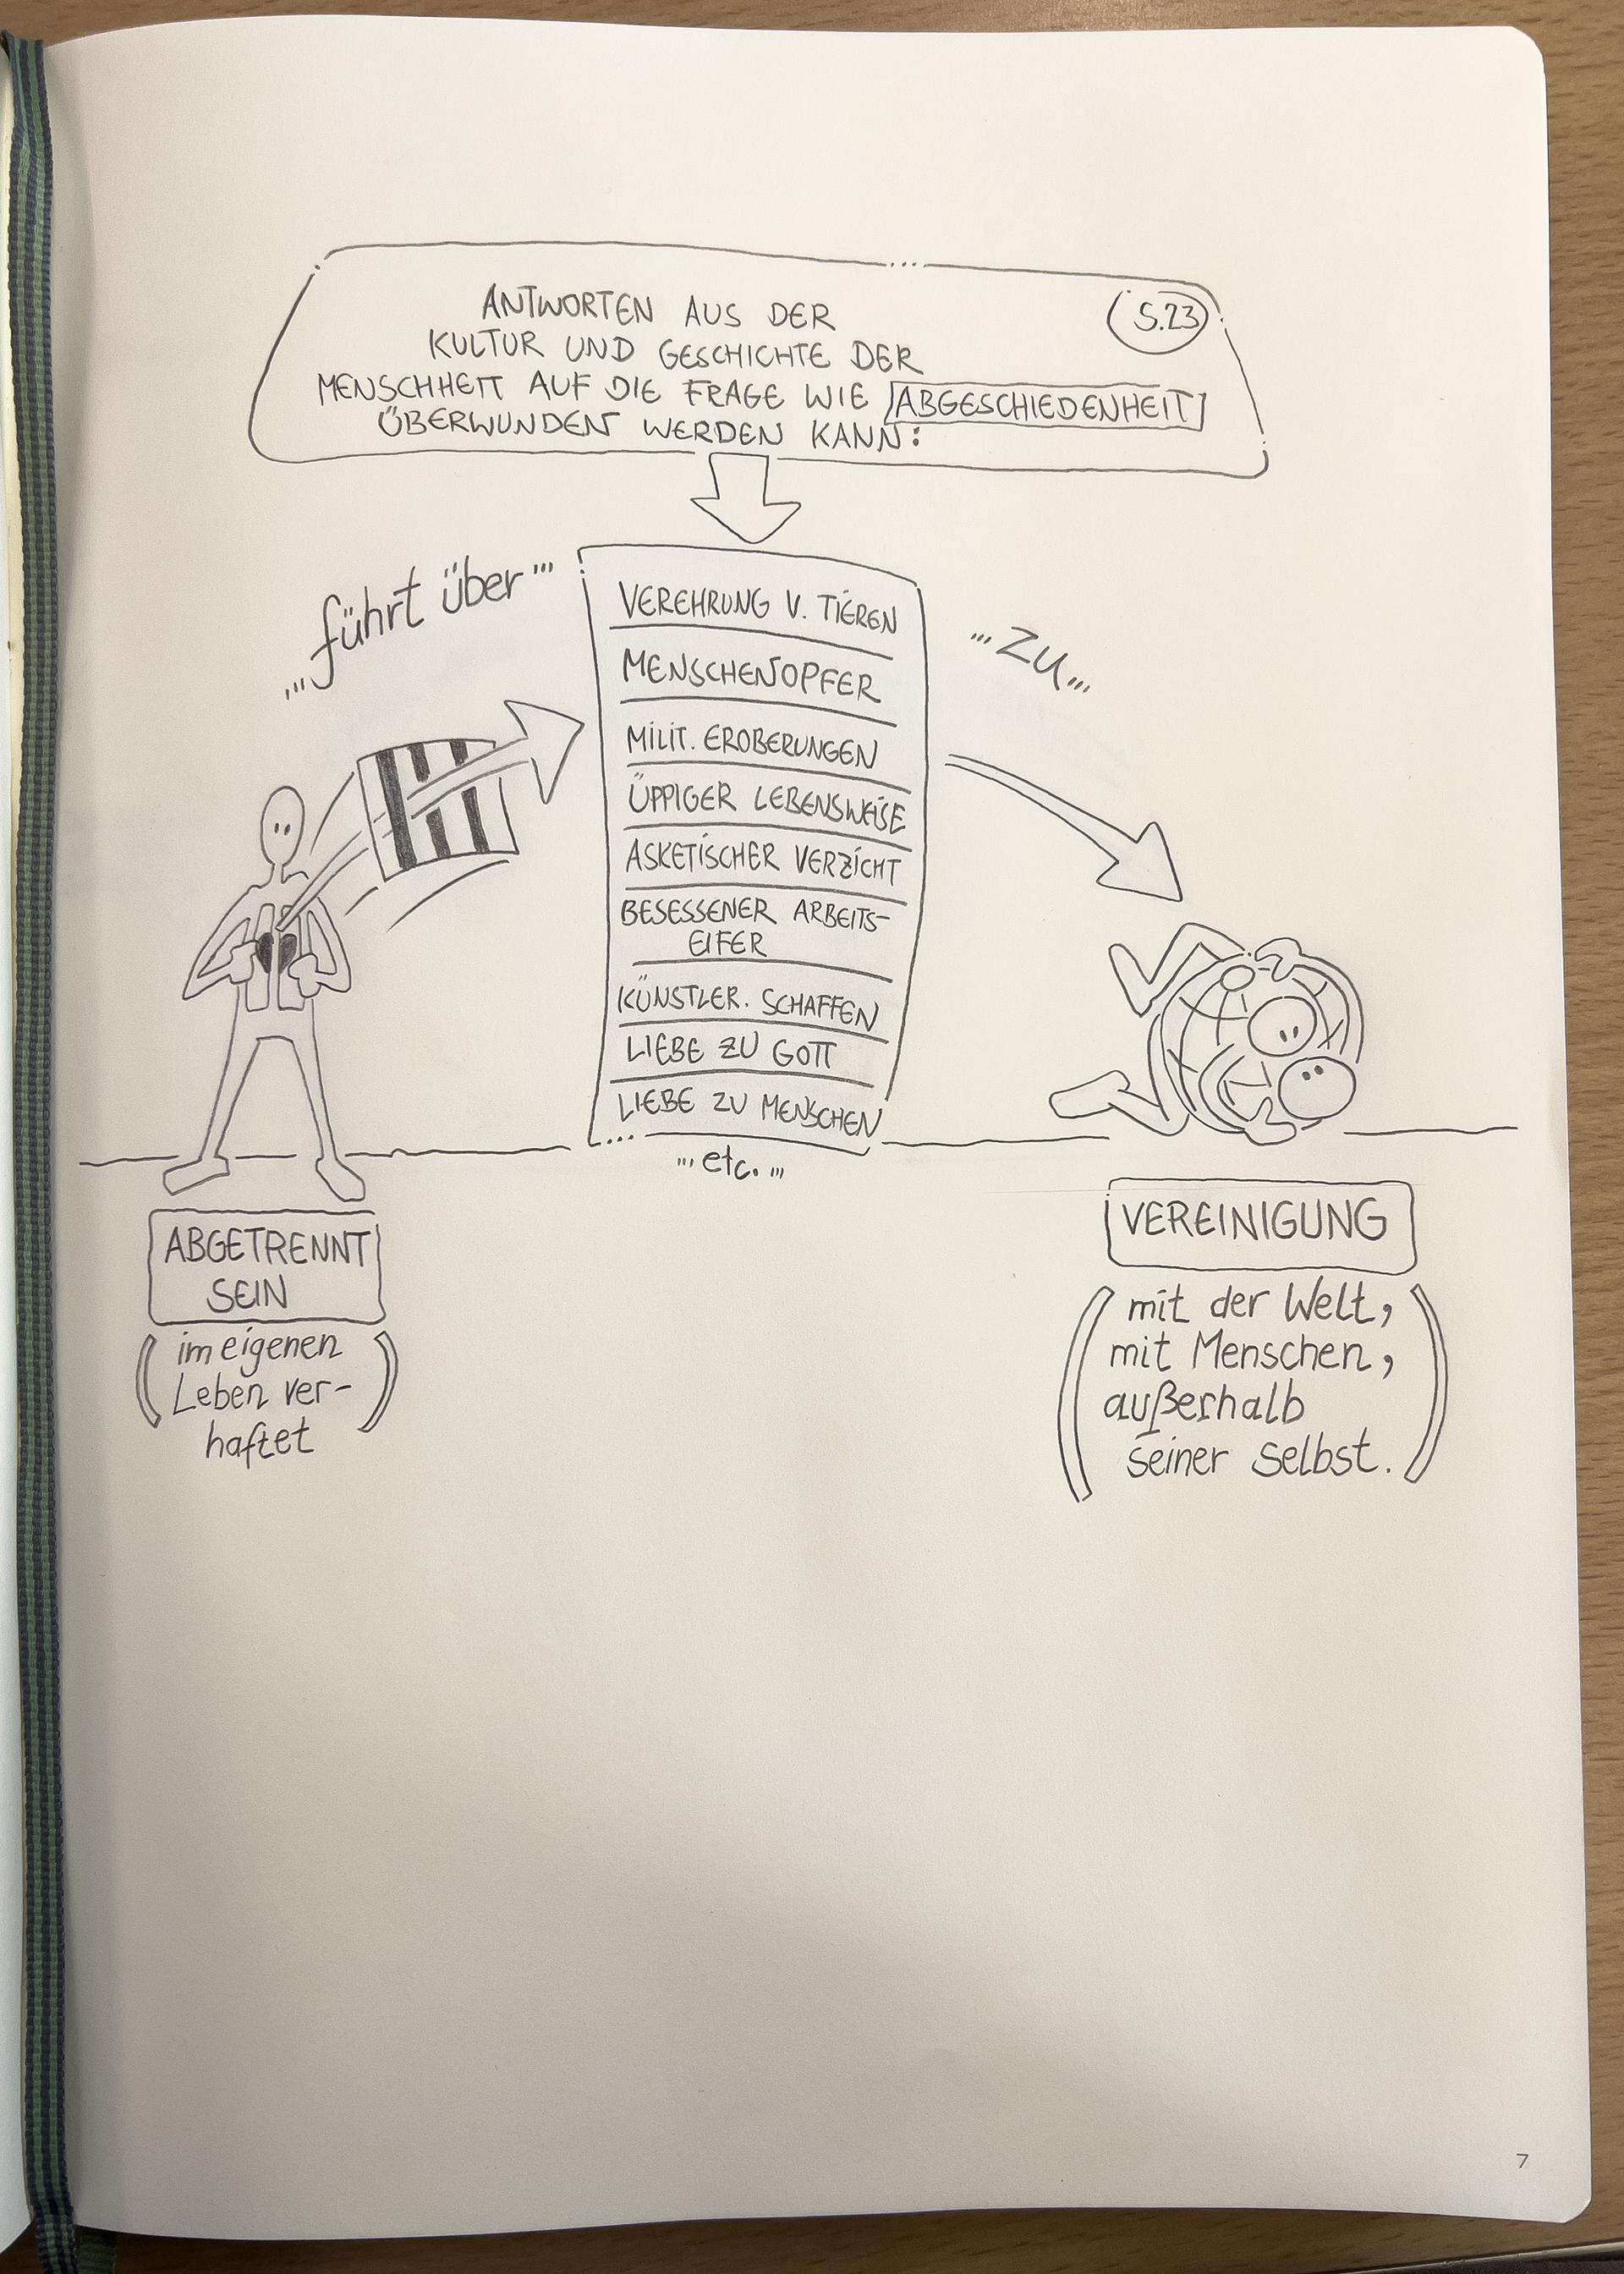 ANTWORTEN AUS DER
S.23
KULTUR UND GESCHICHTE DER
MENSCHHEIT AUF DIE FRAGE WIE ABGESCHIEDENHEIT
ÜBERWUNDEN WERDEN KANN:
...führt über...
...zu...
VEREHRUNG V. TIEREN
MENSCHENOPFER
MILIT. EROBERUNGEN
ÜPPIGER LEBENSWEISE
ASKETISCHER VERZICHT
BESESSENER ARBEITS-
EIFER
KÜNSTLER. SCHAFFEN
LIEBE ZU GOTT
LIEBE ZU MENSCHEN
...etc...
ABGETRENNT
SEIN
(im eigenen
Leben ver-
haftet)
VEREINIGUNG
(mit der Welt,
mit Menschen,
außerhalb
seiner selbst.)
7